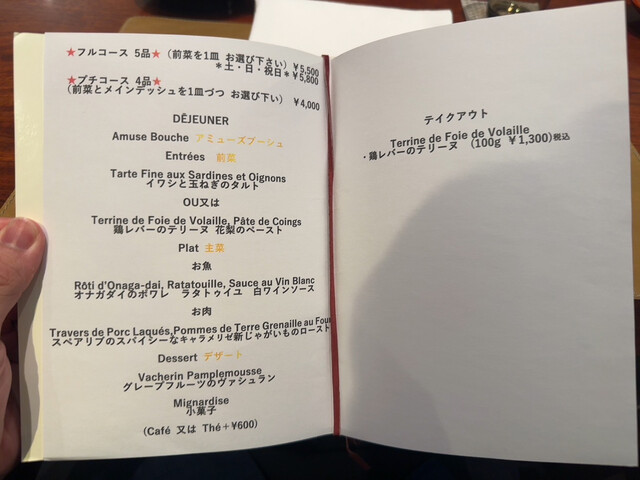 ★フルコース 5品★ (前菜を1皿 お選び下さい) ¥5,500
＊土・日・祝日＊ ¥5,800
★プチコース 4品★
(前菜とメインデッシュを1皿づつ お選び下い) ¥4,000
DÊJEUNER
Amuse Bouche アミューズブーシュ
Entrées 前菜
Tarte Fine aux Sardines et Oignons
イワシと玉ねぎのタルト
OU又は
Terrine de Foie de Volaille, Pâte de Coings
鶏レバーのテリーヌ 花梨のペースト
Plat 主菜
お魚
Rôti d'Onaga-dai, Ratatouille, Sauce au Vin Blanc
オナガダイのポワレ ラタトゥイユ 白ワインソース
お肉
Travers de Porc Laqués,Pommes de Terre Grenaille au Four
スペアリブのスパイシーなキャラメリゼ新じゃがいものロースト
Dessert デザート
Vacherin Pamplemousse
グレープフルーツのヴァシュラン
Mignardise
小菓子
(Café 又は Thé＋¥600)
テイクアウト
Terrine de Foie de Volaille
・鶏レバーのテリーヌ (100g ¥1,300)税込